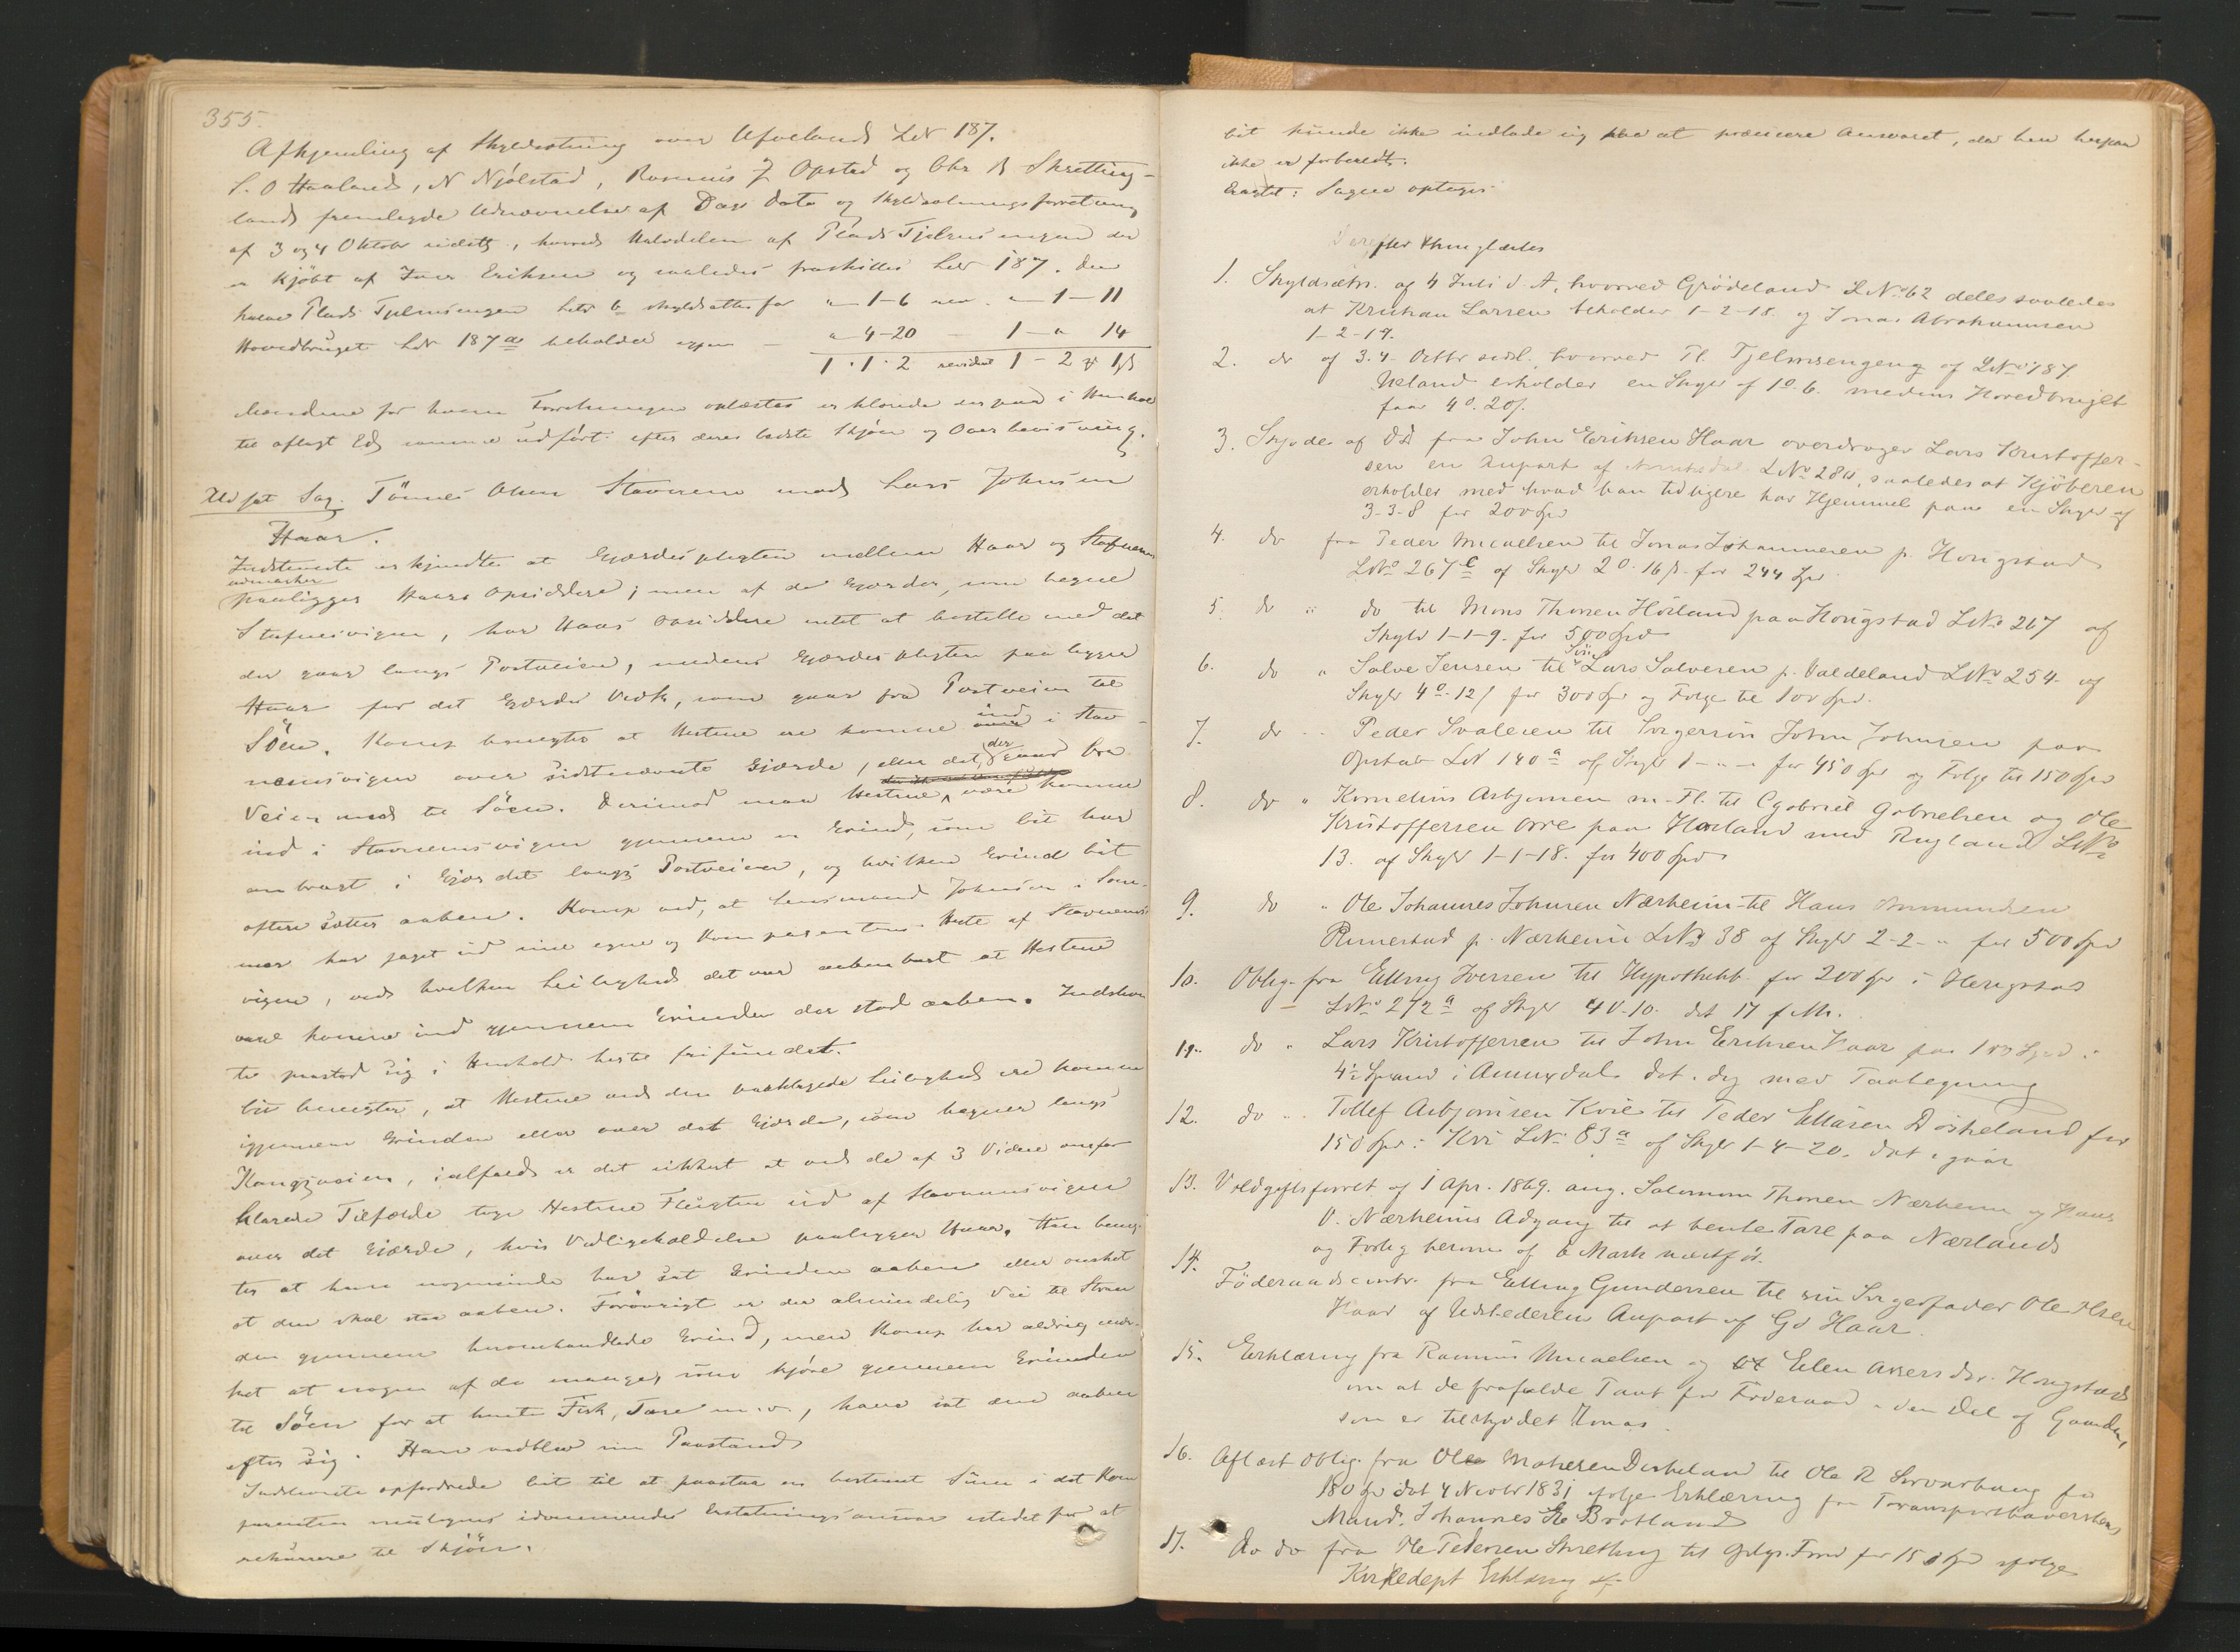 355.
Afhjemling af Skyldsætning over Ueland LNr 187.
S. O Haaland, N Njølstad, Rasmus J Opstad og Chr B Skretting-
land fremlagde Udnævnelse af Dags Dato og Skyldsætningsforretning
af 3 og 4 Oktober sidstl., hvorved Halvdelen af Plads Tjelmsengen der
er kjøbt af Iver Eriksen og saaledes fraskilles LNr 187. den
halve Plads Tjelmsengen LNr b skyldsattes for " 1-6 rev. " - 1 - 11
Hovedbruget LNr 187a beholder igjen — " 4-20 — 1 - " 14
1 · 1 · 2 revideret 1 - 2
Mændene for hvem Forretningen oplæstes erklærede den paa i Henhold
til aflagt Ed samme udført efter deres bedste Skjøn og Overbevisning.
Udsat Sag. Tønnes Olsen Stavnem mod Lars Johnsen
Haar.
Indstevnte erkjendte at Gjærdespligten mellem Haar og Stafnem
udmarker
paaligger Haars Opsiddere; men af de Gjærder, som hegne
Stafnesvigen, har Haars Opsiddere intet at bestille med det
der gaar langs Postveien, medens Gjærdespligten paaligger
Haar for det Gjærdes Vedk, som gaar fra Postveien til
Söen. Komp benegter at Hestene ere komne ind i Stav-
nemsvigen over sidstnævnte Gjærde, eller det, der gaar fra
Veien ned til Söen. Derimod maa Hestene være komne
ind i Stavnemsvigen gjennem en Grind, som Cit har
anbragt i Gjærdet langs Postveien, og hvilken Grind Cit
oftere sætter aaben. Komp ved, at Lensmand Johnsen i Som-
mer har jaget ud sine egne og Komparentens Heste af Stavnems-
vigen, ved hvilken Leilighed det var aabenbart at Hestene
vare komne ind gjennem Grinden der stod aaben. Indstevn
te paastod sig i Henhold hertil frifundet.
Cit benegter, at Hestene ved den paaklagede Leilighed ere komne
igjennem Grinden eller over det Gjærde, som hegner langs
Kongeveien, ialfald er det sikkert at ved de af 3 Vidner omfor
klarede Tilfælde toge Hestene Flugten ud af Stavnemsvigen
over det Gjærde, hvis Vedligeholdelse paaligger Haar. Han beneg-
ter at han nogensinde har sat Grinden aaben eller ønsket
at den skal staa aaben. Forøvrigt er der almindelig Vei til Stran
den gjennem heromhandlede Grind, men Komp har aldrig mær-
ket at nogen af de mange, som kjøre gjennem Grinden
til Söen for at hente Fisk, Tare m.v., have sat den aaben
efter sig. Han vedblev sin Paastand
Indstevnte opfordrede Cit til at paastaa en bestemt Sum i det Kom
parenten muligens idømmendes Erstatningsansvar istedet for at
rekurrere til Skjøn.
Cit kunde ikke indlade sig paa at præcisere Ansvaret, da han herpaa
ikke er forberedt.
Eragtet: Sagen optages
Derefter thinglæstes
1. Skyldsætn. af 4 Juli d. A. hvorved Grödeland LNo 62 deles saaledes
at Kristian Larsen beholder 1-2-18. og Jonas Abrahamsen
1-2-19.
2. do af 3.4. Octbr sidl. hvorved Pl. Tjelmsengeng af LNo 187.
Ueland erholder en Skyld af 1 o. 6. medens Hovedbruget
faar 4 o. 20 s.
3. Skjøde af DD fra John Eriksen Haar overdrager Lars Kristoffer-
sen en Anpart af LNo 28a, saaledes at Kjøberen
erholder med hvad han tidligere har Hjemmel paa en Skyld af
3-3-8 for 200 Spd
4. do fra Peder Micaelsen til Jonas Johannesen p. Hongstad
LNo 267c af Skyld 2 o. 16 s. for 244 Spd.
5. do " do til Mons Thorsen Höiland paa Hongstad LNo 267 af
Skyld 1-1-9. for 500 Spd
6. do " Salve Jensen til Sön Lars Salvesen p. Valdeland LNo 254 af
Skyld 4 o. 12 s for 300 Spd og Folge til 100 Spd.
7. do " Peder Svalesen til Svigersön John Johnsen paa
Opstad LN 140a af Skyld 1 - " - " for 450 Spd og Folge til 150 Spd
8. do " Kornelius Asbjørnsen m. Fl. til Gabriel Gabrielsen og Ole
Kristoffersen Orre paa Horland med Rugland LNo
13. af Skyld 1-1-18. for 400 Spd
9. do " Ole Johannes Johnsen Nærheim til Hans Ommundsen
Rimestad p. Nærheim LNo 38 af Skyld 2-2-" for 500 Spd
10. Oblig. fra Elling Iversen til Hypothekb. for 200 Spd i Hongstad
LNo 272a af Skyld 4 o. 10. dat 17 f. M.
11. do " Lars Kristoffersen til John Eriksen Haar paa 100 Spd. i
4½ Spand i Aunesdal dat. dg med Paategning
12. do " Tollef Asbjørnsen Kvie til Peder Eliasen Döskeland for
150 Spd: Kvi LNo 83a af Skyld 1-4-20. dat igaar
13. Voldgiftsforret. af 1 Apr. 1869. ang. Salomon Thorsen Nærheim og Hans
O. Nærheims Adgang til at hente Tare paa Nærland
og Forlig herom af 6 Marts næstfør.
14. Föderaadscontr. fra Elling Gundersen til sin Svigerfader Ole Olsen
Haar af Uskedelen Anpart af Gd Haar.
15. Erklæring fra Rasmus Micaelsen og Elen Assersdtr. Hongstad
om at de frafalde Pant for Föderaad i den Del af Gaarden,
som er tilskjødet Jonas.
16. Aflæst Oblig. fra Ole Mathesen Döskeland til Ole R Sorvarhaug for
180 Spd dat 4 Novbr 1831 ifølge Erklæring fra Transporthaverskens
Mand, Johannes E Brotland
17. do do fra Ole Pedersen Skretting til Oplys. Fond for 150 Spd ifølge
Kirkedept Erklæring